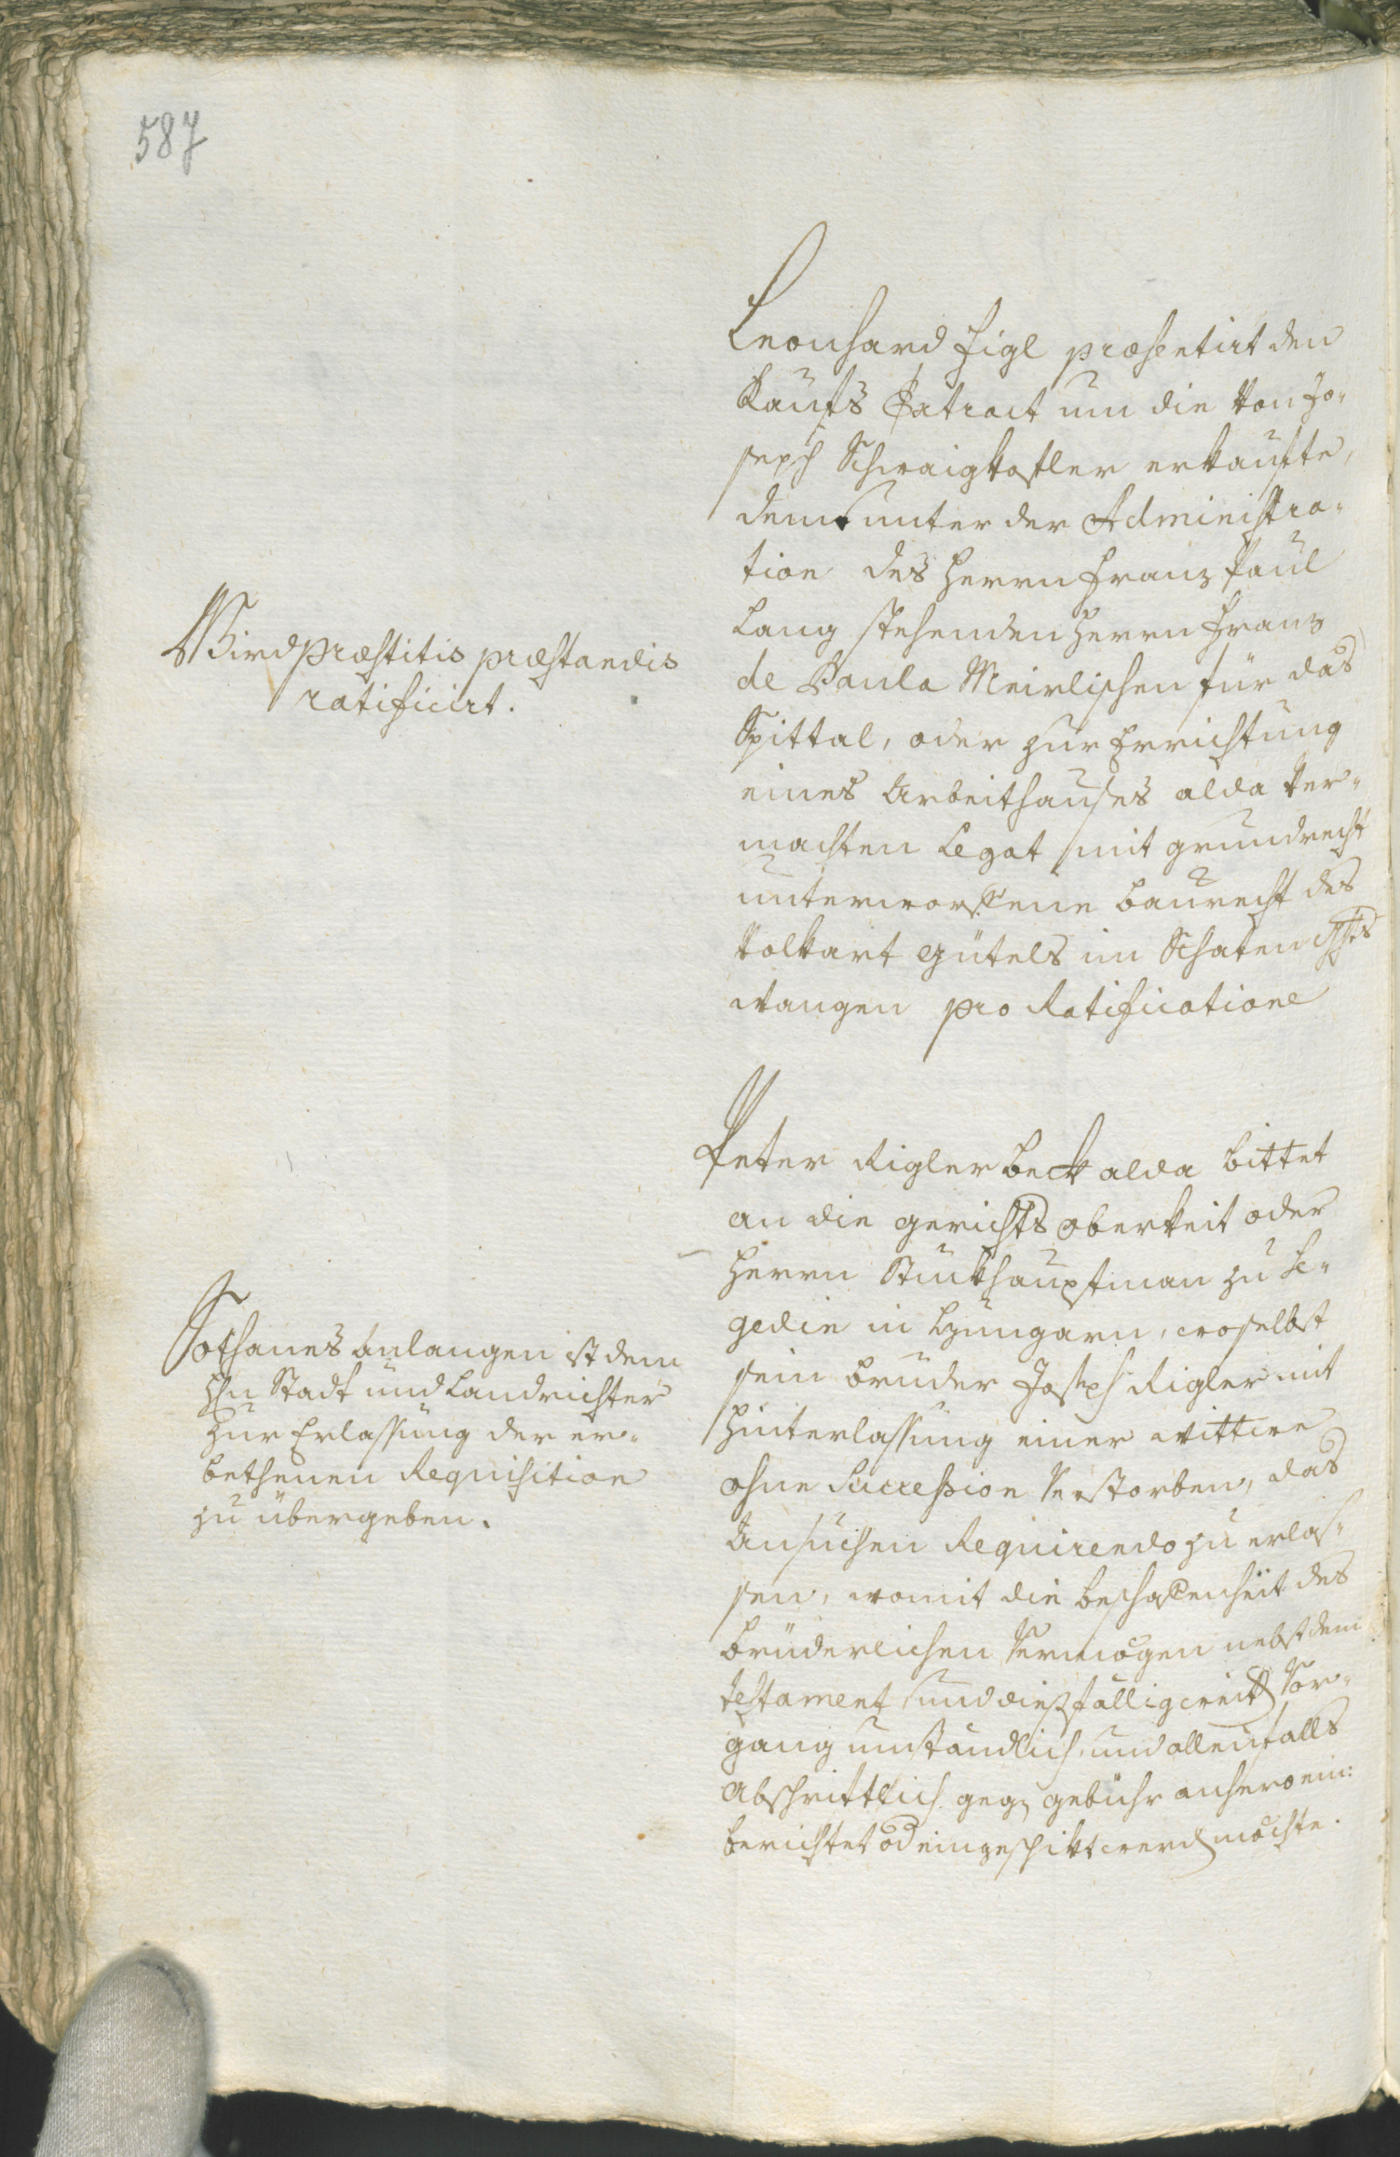 587
Leonhard Figl præsentirt den
Kaufs Extract um die von Jo-
seph Schwaigkofler erkaufte,
dem unter der Administra-
tion des Herrn Franz Paul
Lang stehenden Herrn Franz
de Paula Meirlischen für das
Spittal, oder zur Errichtung
eines Arbeithauses alda ver-
machten Legat mit grundrecht
unterworffene Baurecht des
Volkart gütels im Schaten
wangen pro Ratificatione
Wird præstitis præstandis
ratificirt.
Peter Rigler Beck alda bittet
an die gerichts oberkeit oder
Herrn Stuckhauptman zu Se-
gedin in Hungarn, woselbst
sein Bruder Joseph Rigler mit
Hinterlassung einer Wittwe
ohne Succession verstorben, das
Ansuchen Requirendo zu erlas-
sen, womit die Beschaffenheit des
Brüderlichen Vermögen nebst dem
Testament und diesfällig Vor-
gang umständlich, und allenfalls
Abschriftlich geg gebühr anhero ein:
berichtet od eingeschikt werd möchte.
Sothanes Anlangen ist dem
Hn Stadt und Landrichter
zur Erlassung der er-
bethenen Requisition
zu übergeben.